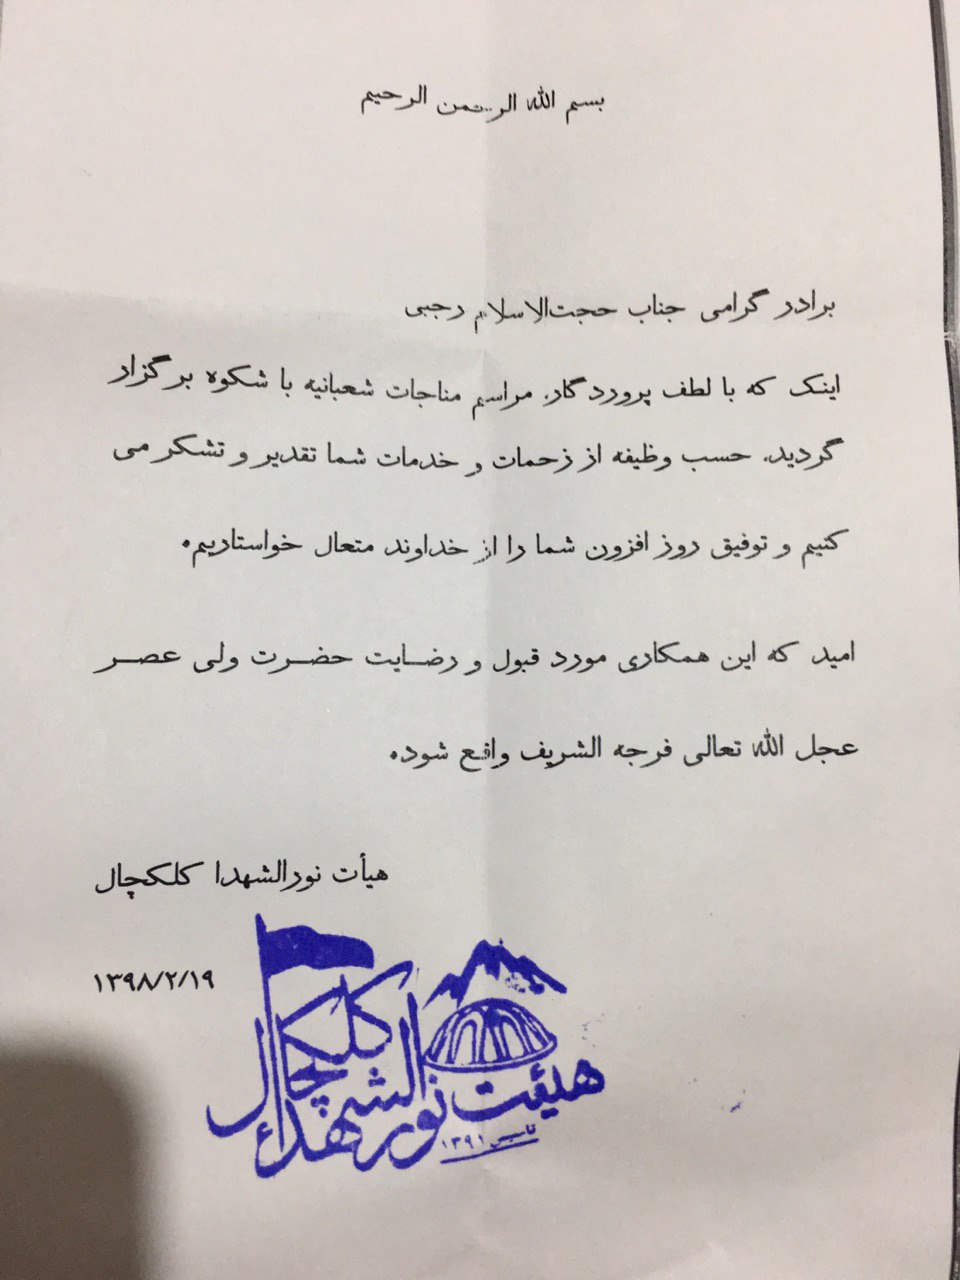 بسم الله الرحمن الرحیم
برادر گرامی جناب حجت‌الاسلام رجبی
اینک که با لطف پروردگار، مراسم مناجات شعبانیه با شکوه برگزار
گردید، حسب وظیفه از زحمات و خدمات شما تقدیر و تشکر می
کنیم و توفیق روز افزون شما را از خداوند متعال خواستاریم.
امید که این همکاری مورد قبول و رضایت حضرت ولی عصر
عجل الله تعالی فرجه الشریف واقع شود.
هیأت نورالشهدا کلکچال
۱۳۹۸/۲/۱۹
هیئت نورالشهداء کلکچال
تاسیس ۱۳۹۱